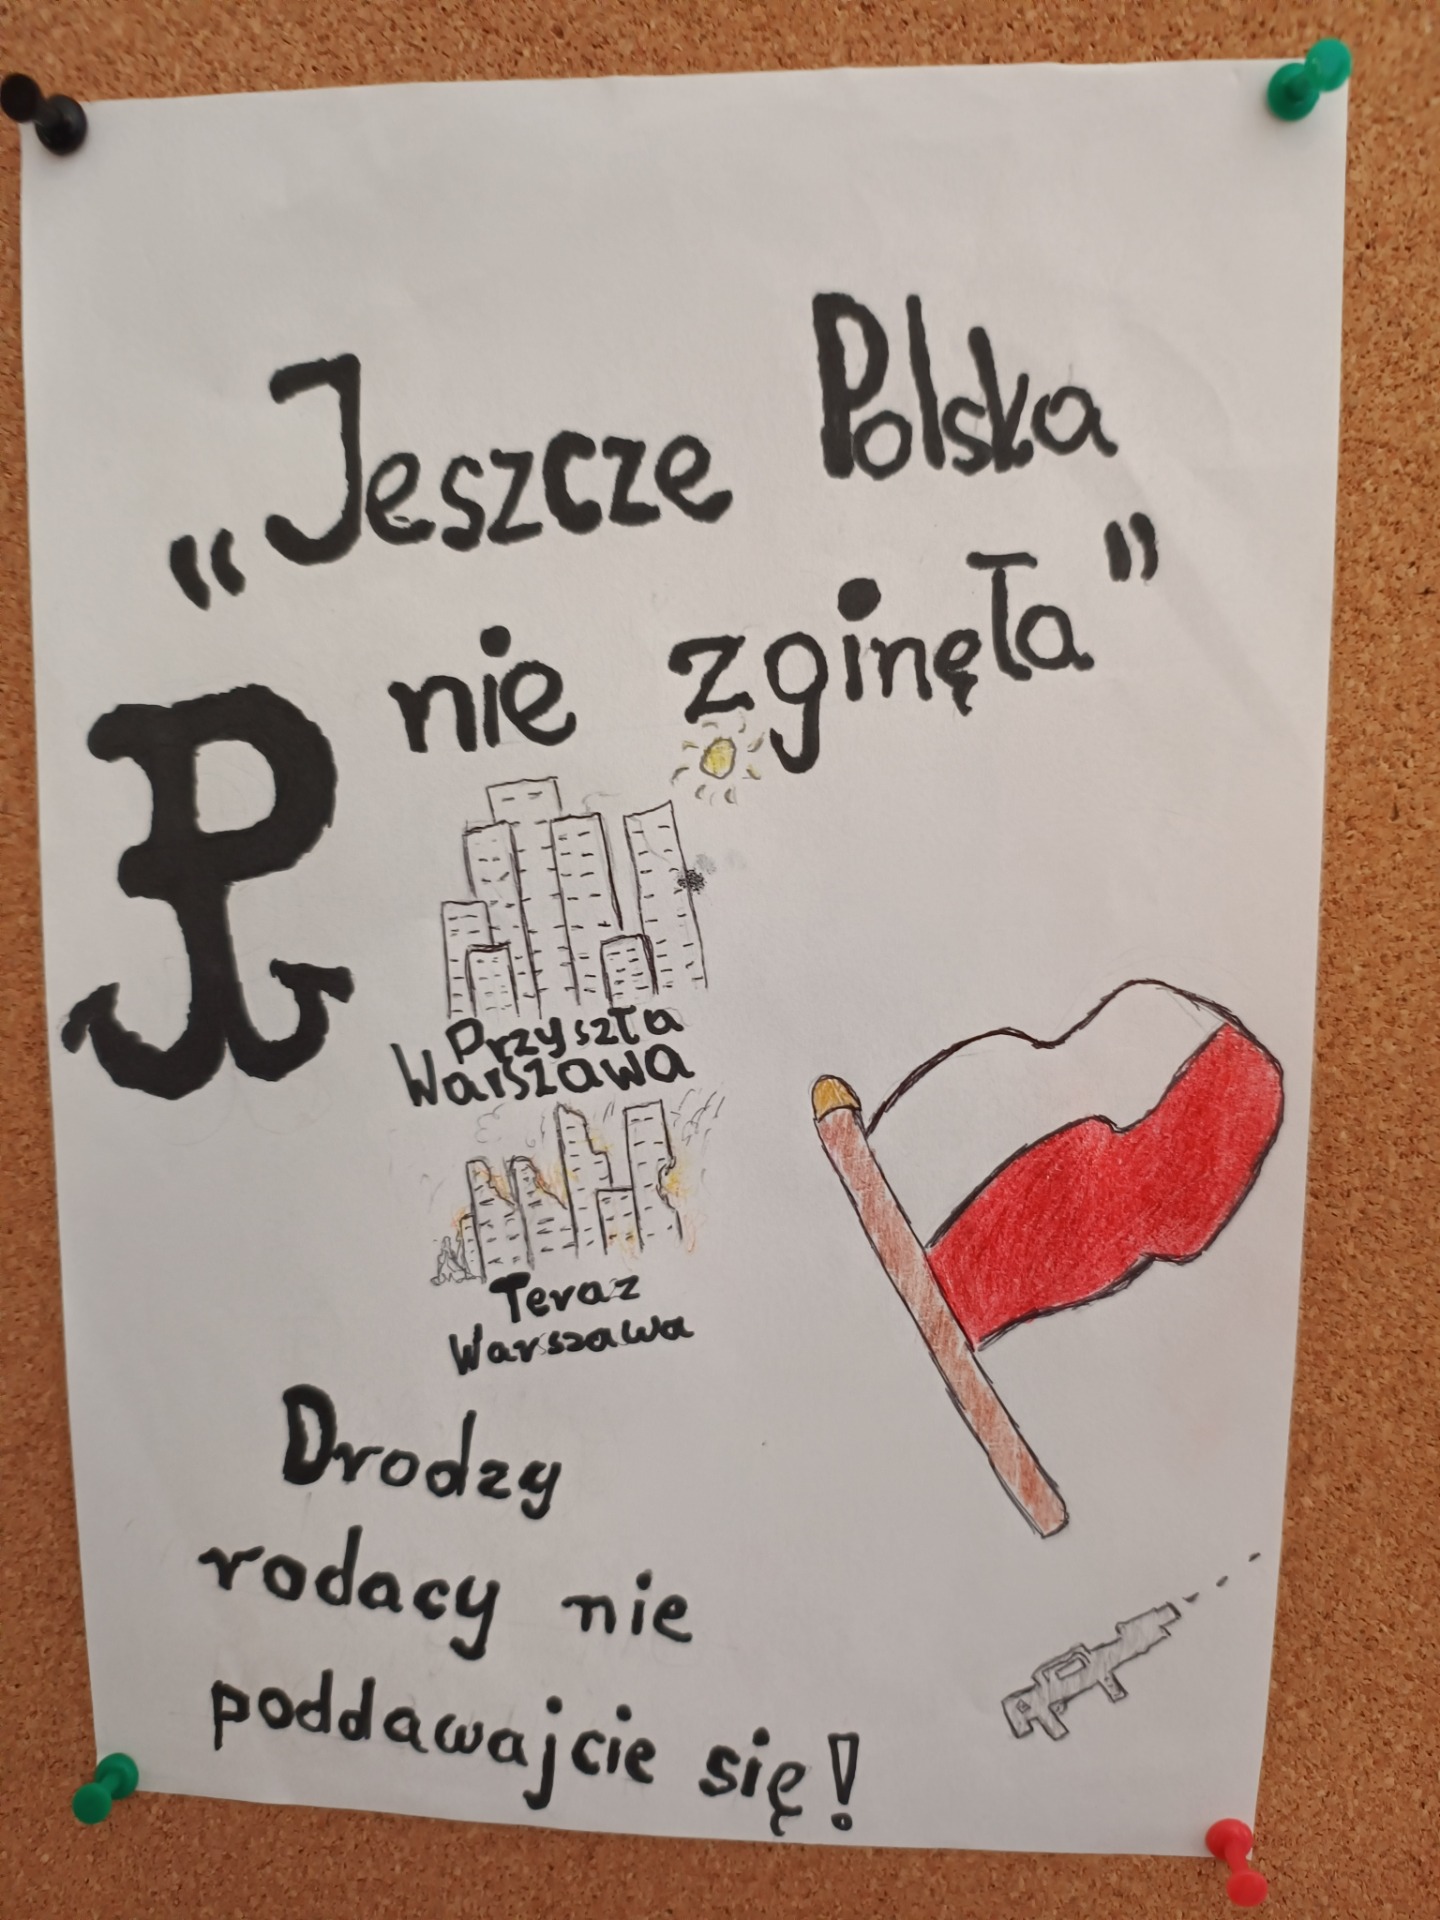 „Jeszcze Polska
nie zginęła”
Przyszła
Warszawa
Teraz
Warszawa
Drodzy
rodacy nie
poddawajcie się!